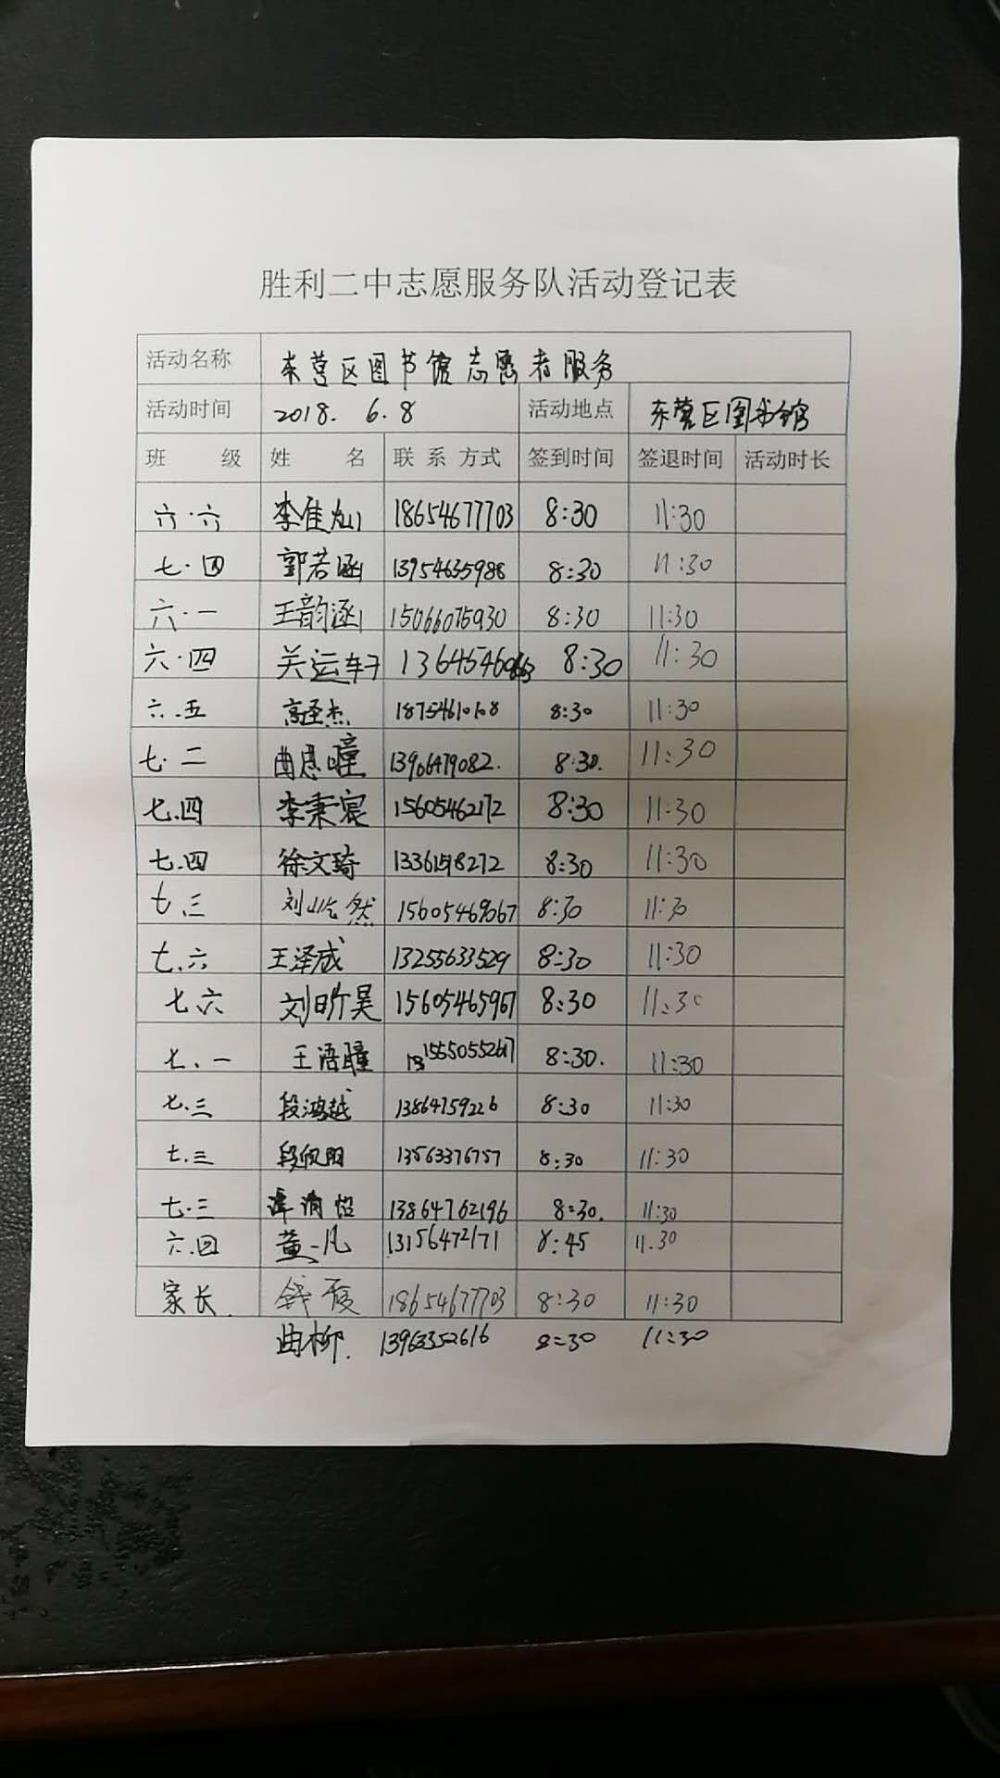 胜利二中志愿服务队活动登记表
活动名称 东营区图书馆志愿者服务
活动时间 2018. 6.8 活动地点 东营区图书馆
班 级 姓 名 联系方式 签到时间 签退时间 活动时长
六.六 李佳灿 18654677703 8:30 11:30
七.四 郭若涵 13954635988 8:30 11:30
六.一 王韵涵 15066075930 8:30 11:30
六.四 关运 8:30 11:30
六.五 高圣杰 8:30 11:30
七.二 曲思瞳 13906479082. 8:30. 11:30
七.四 李秉宸 15605462172 8:30 11:30
七.四 徐文琦 8:30 11:30
七.三 刘 然 15605469067 8:30 11:30
七.六 王泽成 13255633529 8:30 11:30
七六 刘昕昊 15605465967 8:30 11:30
七.一 王语瞳 15550552617 8:30. 11:30
七.三 段鸿越 13864759226 8:30 11:30
七.三 段 13563376757 8:30 11:30
七.三 13864762196 8:30. 11:30
六.四 董一凡 13156472171 8:45 11.30
家长. 钱霞 18654677703 8:30 11:30
曲柳. 13963352616 8:30 11:30